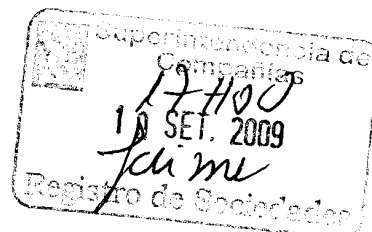 Superintendencia de
Compañías
17H00
10 SET. 2009
Jaime
Registro de Sociedades